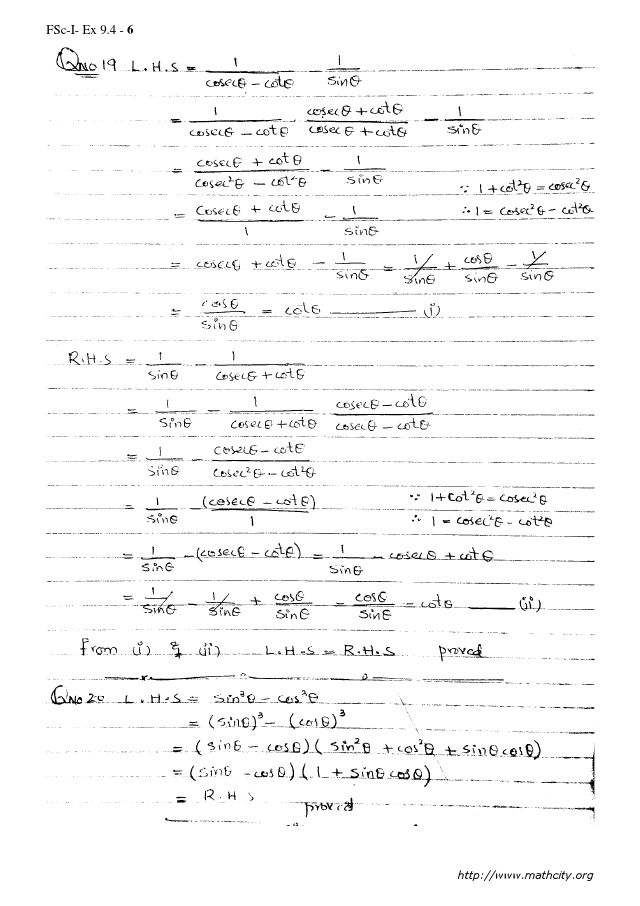 FSc-I- Ex 9.4 - 6
Qno 19 L.H.S = 1/(cosecθ - cotθ) - 1/sinθ
= 1/(cosecθ - cotθ) (cosecθ + cotθ)/(cosecθ + cotθ) - 1/sinθ
= (cosecθ + cotθ)/(cosec²θ - cot²θ) - 1/sinθ ∵ 1 + cot²θ = cosec²θ
= (cosecθ + cotθ)/1 - 1/sinθ ∴ 1 = cosec²θ - cot²θ
= cosecθ + cotθ - 1/sinθ = 1/sinθ + cosθ/sinθ - 1/sinθ
= cosθ/sinθ = cotθ ——— (i)
R.H.S = 1/sinθ - 1/(cosecθ + cotθ)
= 1/sinθ - 1/(cosecθ + cotθ) (cosecθ - cotθ)/(cosecθ - cotθ)
= 1/sinθ - (cosecθ - cotθ)/(cosec²θ - cot²θ)
= 1/sinθ - (cosecθ - cotθ)/1 ∵ 1 + cot²θ = cosec²θ
∴ 1 = cosec²θ - cot²θ
= 1/sinθ - (cosecθ - cotθ) = 1/sinθ - cosecθ + cotθ
= 1/sinθ - 1/sinθ + cosθ/sinθ = cosθ/sinθ = cotθ ——— (ii)
from (i) & (ii) L.H.S = R.H.S proved
Qno 20 L.H.S = sin³θ - cos³θ
= (sinθ)³ - (cosθ)³
= (sinθ - cosθ)(sin²θ + cos²θ + sinθ cosθ)
= (sinθ - cosθ)(1 + sinθ cosθ)
= R.H.S
proved
http://www.mathcity.org